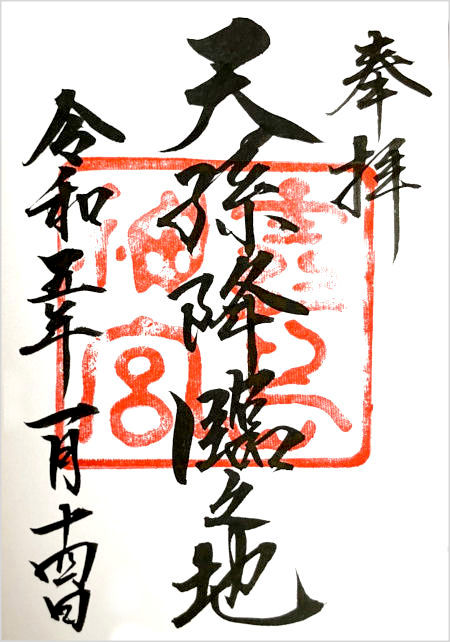 奉拝
天孫降臨之地
令和五年一月十四日